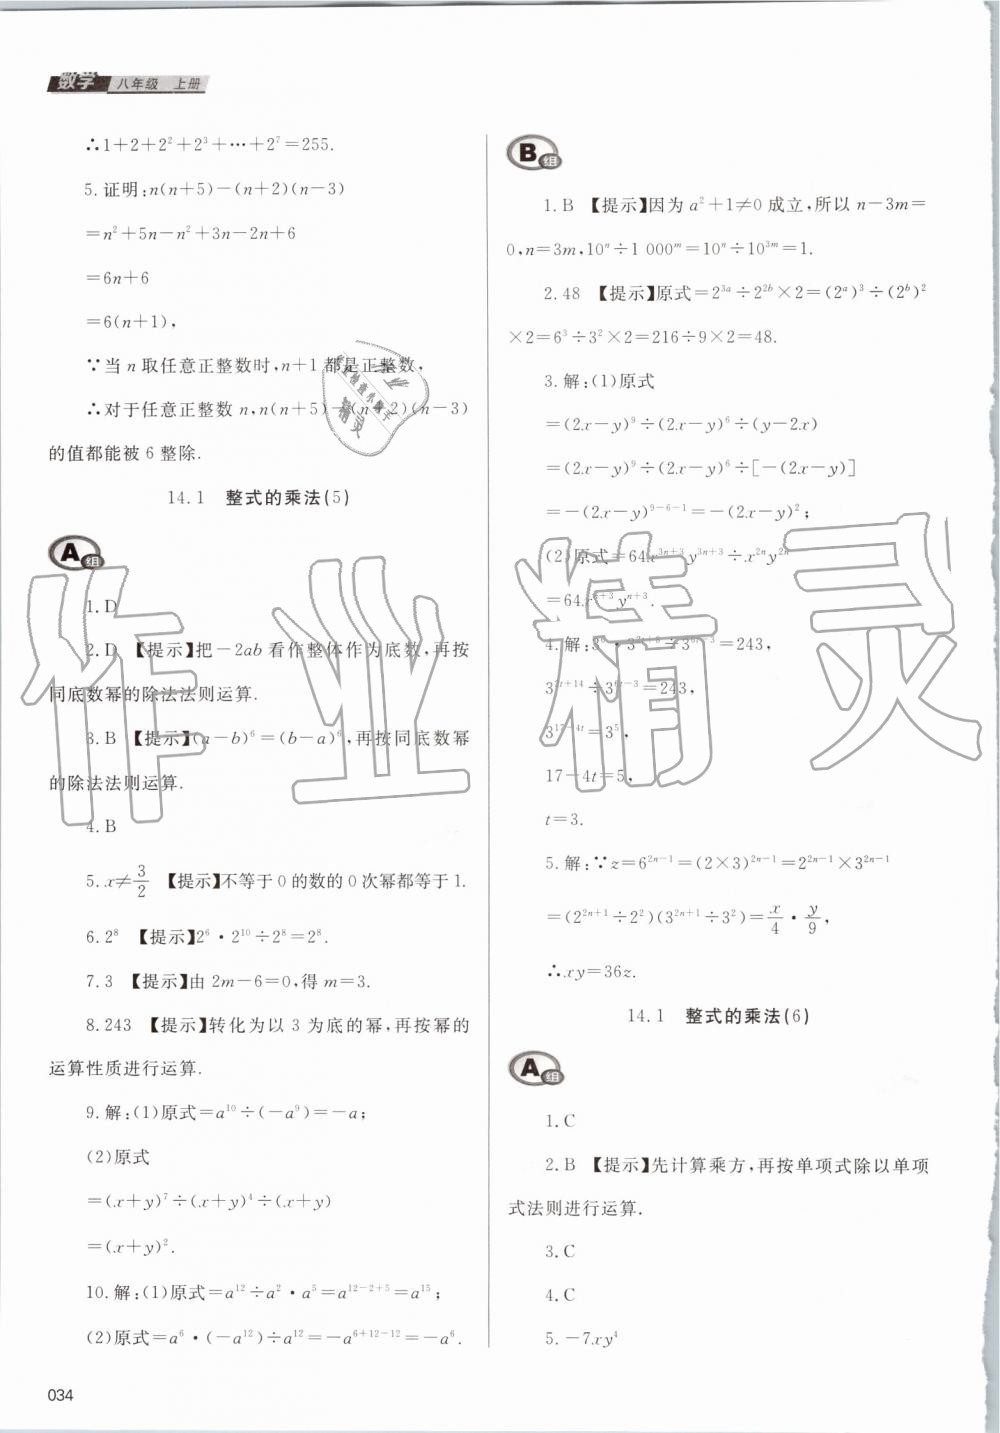 数学 八年级 上册
∴1+2+2²+2³+…+2⁷=255.
5.证明:n(n+5)-(n+2)(n-3)
=n²+5n-n²+3n-2n+6
=6n+6
=6(n+1),
∵当 n 取任意正整数时,n+1 都是正整数,
∴对于任意正整数 n,n(n+5)-(n+2)(n-3)
的值都能被 6 整除.
14.1 整式的乘法(5)
A组
1.D
2.D 【提示】把-2ab 看作整体作为底数,再按
同底数幂的除法法则运算.
3.B 【提示】(a-b)⁶=(b-a)⁶,再按同底数幂
的除法法则运算.
4.B
5.x≠3/2 【提示】不等于 0 的数的 0 次幂都等于 1.
6.2⁸ 【提示】2⁶·2¹⁰÷2⁸=2⁸.
7.3 【提示】由 2m-6=0,得 m=3.
8.243 【提示】转化为以 3 为底的幂,再按幂的
运算性质进行运算.
9.解:(1)原式=a¹⁰÷(-a⁹)=-a;
(2)原式
=(x+y)⁷÷(x+y)⁴÷(x+y)
=(x+y)².
10.解:(1)原式=a¹²÷a²·a⁵=a¹²⁻²⁺⁵=a¹⁵;
(2)原式=a⁶·(-a¹²)÷a¹²=-a⁶⁺¹²⁻¹²=-a⁶.
034
B组
1.B 【提示】因为 a²+1≠0 成立,所以 n-3m=
0,n=3m,10ⁿ÷1 000ᵐ=10ⁿ÷10³ᵐ=1.
2.48 【提示】原式=2³ᵃ÷2²ᵇ×2=(2ᵃ)³÷(2ᵇ)²
×2=6³÷3²×2=216÷9×2=48.
3.解:(1)原式
=(2x-y)⁹÷(2x-y)⁶÷(y-2x)
=(2x-y)⁹÷(2x-y)⁶÷[-(2x-y)]
=-(2x-y)⁹⁻⁶⁻¹=-(2x-y)²;
(2)原式=64x³ⁿ⁺³y³ⁿ⁺³÷x²ⁿy²ⁿ
=64xⁿ⁺³yⁿ⁺³.
4.解: =243,
=243,
3¹⁷⁻⁴ᵗ=3⁵,
17-4t=5,
t=3.
5.解:∵z=6²ⁿ⁻¹=(2×3)²ⁿ⁻¹=2²ⁿ⁻¹×3²ⁿ⁻¹
=(2²ⁿ⁺¹÷2²)(3²ⁿ⁺¹÷3²)=x/4·y/9,
∴xy=36z.
14.1 整式的乘法(6)
A组
1.C
2.B 【提示】先计算乘方,再按单项式除以单项
式法则进行运算.
3.C
4.C
5.-7xy⁴
作业精灵